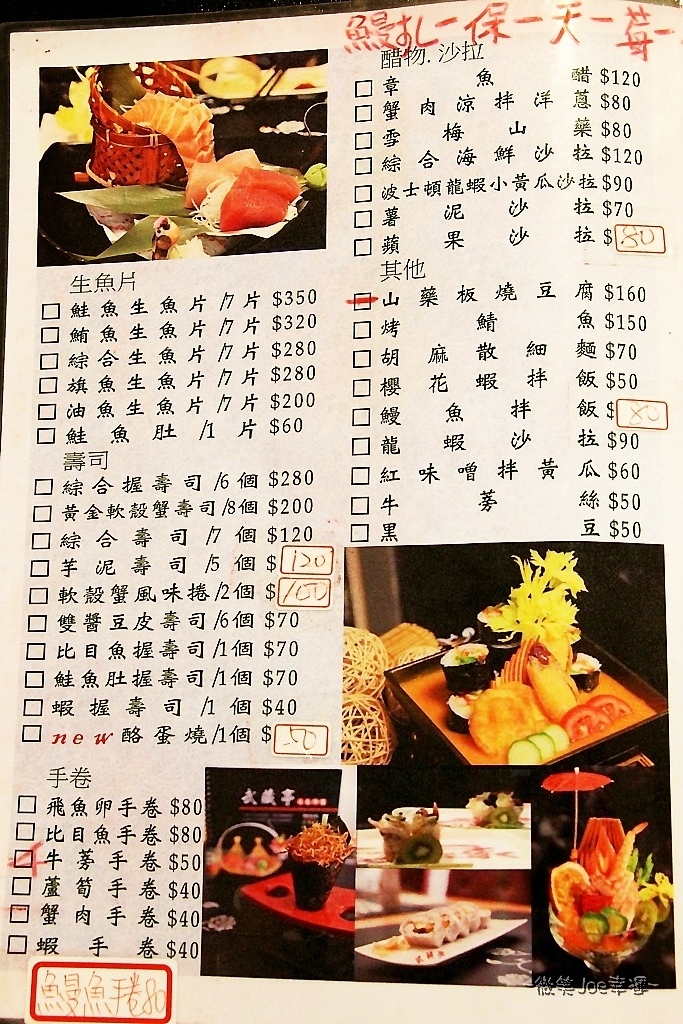 鰻
一保一天一
醋物.沙拉
章魚醋$120
蟹肉涼拌洋蔥$80
雪梅山藥$80
綜合海鮮沙拉$120
波士頓龍蝦小黃瓜沙拉$90
薯泥沙拉$70
蘋果沙拉$80
其他
山藥板燒豆腐$160
烤鯖魚$150
胡麻散細麵$70
櫻花蝦拌飯$50
鰻魚拌飯$80
龍蝦沙拉$90
紅味噌拌黃瓜$60
牛蒡絲$50
黑豆$50
生魚片
鮭魚生魚片/7片$350
鮪魚生魚片/7片$320
綜合生魚片/7片$280
旗魚生魚片/7片$280
油魚生魚片/7片$200
鮭魚肚/1片$60
壽司
綜合握壽司/6個$280
黃金軟殼蟹壽司/8個$200
綜合壽司/7個$120
芋泥壽司/5個$120
軟殼蟹風味捲/2個$100
雙醬豆皮壽司/6個$70
比目魚握壽司/1個$70
鮭魚肚握壽司/1個$70
蝦握壽司/1個$40
new酪蛋燒/1個$50
手卷
飛魚卵手卷$80
比目魚手卷$80
牛蒡手卷$50
蘆筍手卷$40
蟹肉手卷$40
蝦手卷$40
鰻魚手卷80
武藏亭
~微笑Joe幸運~